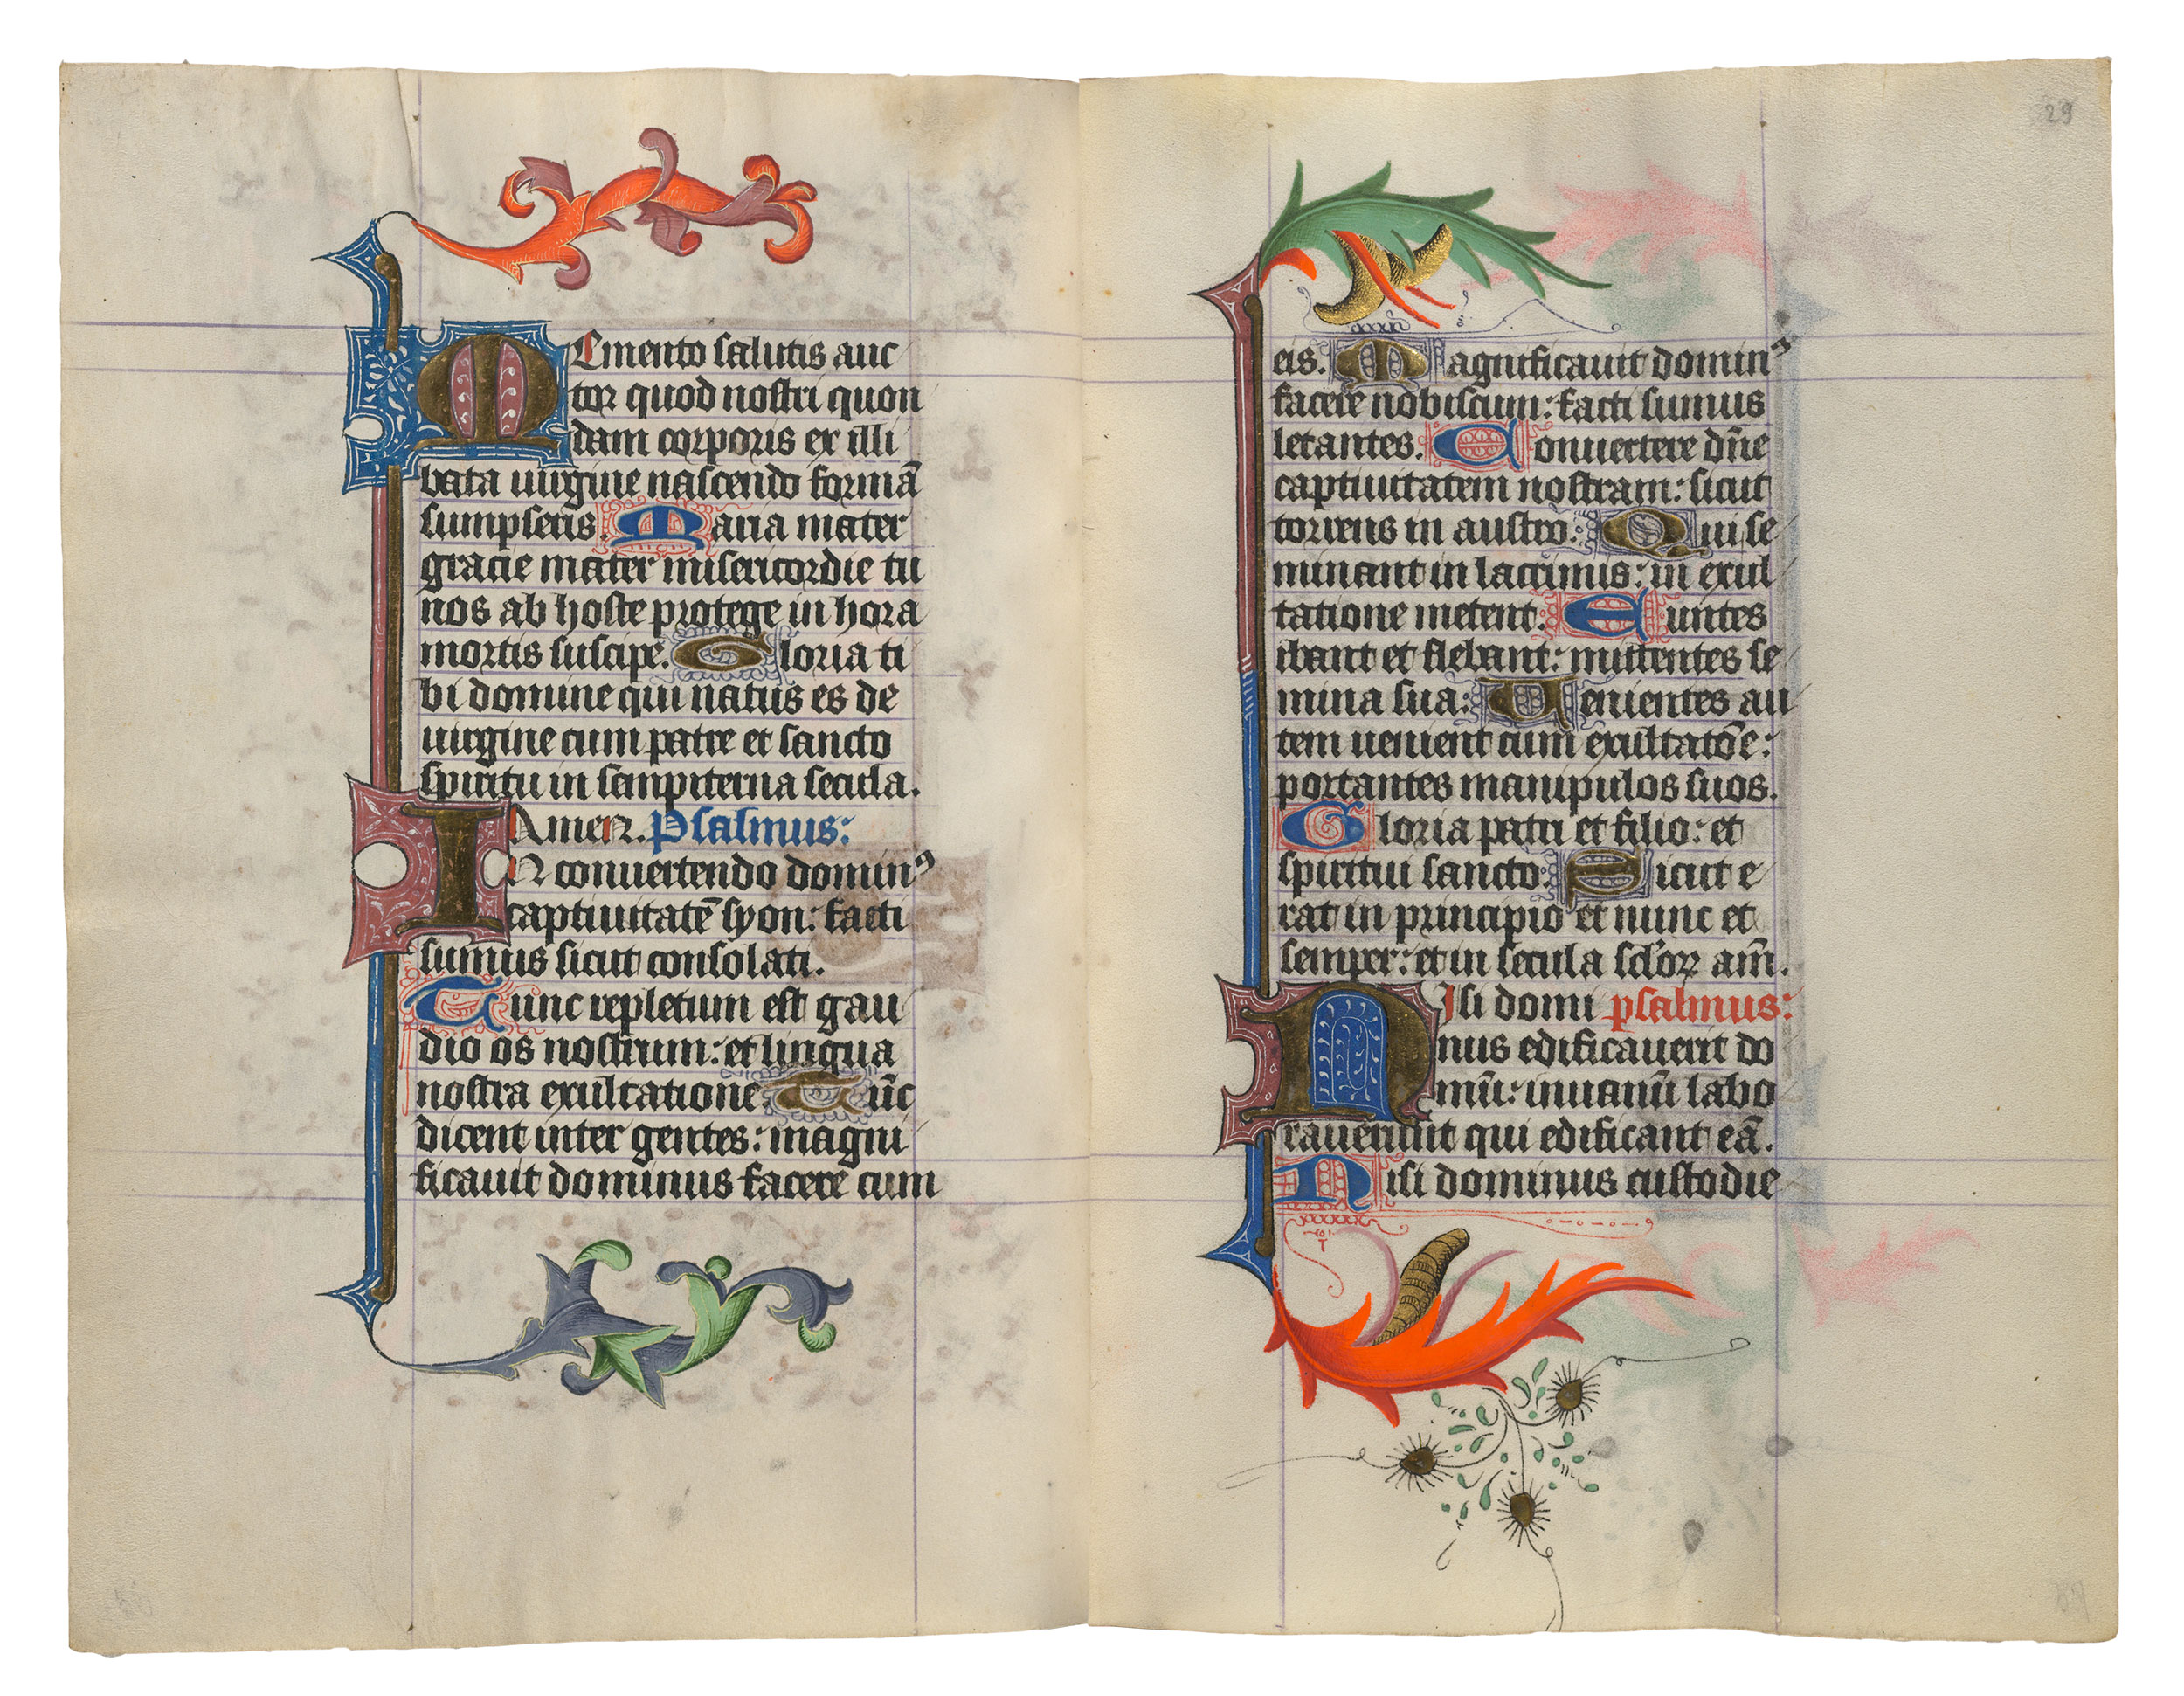 Memento salutis auc
tor quod nostri quon
dam corporis ex illi
bata uirgine nascendo formā
sumpseris. Maria mater
gracie mater misericordie tu
nos ab hoste protege in hora
mortis suscipe. Gloria ti
bi domine qui natus es de
uirgine cum patre et sancto
spiritu in sempiterna secula.
Amen. Psalmus:
IN conuertendo dominꝰ
captiuitatē syon: facti
sumus sicut consolati.
Tunc repletum est gau
dio os nostrum: et lingua
nostra exultatione. Tūc
dicent inter gentes: magni
ficauit dominus facere cum
29
eis. Magnificauit dominꝰ
facere nobiscum: facti sumus
letantes. Conuertere dn̄e
captiuitatem nostram: sicut
torrens in austro: Qui se
minant in lacrimis: in exul
tatione metent. Euntes
ibant et flebant: mittentes se
mina sua: Uenientes au
tem uenient cum exultatōe:
portantes manipulos suos.
Gloria patri et filio: et
spiritui sancto: Sicut e
rat in principio et nunc et
semper: et in secula sclo᷒ꝝ am̄.
Nisi domi psalmus:
nus edificauerit do
mū: inuanū labo
rauerunt qui edificant eā.
Nisi dominus custodie